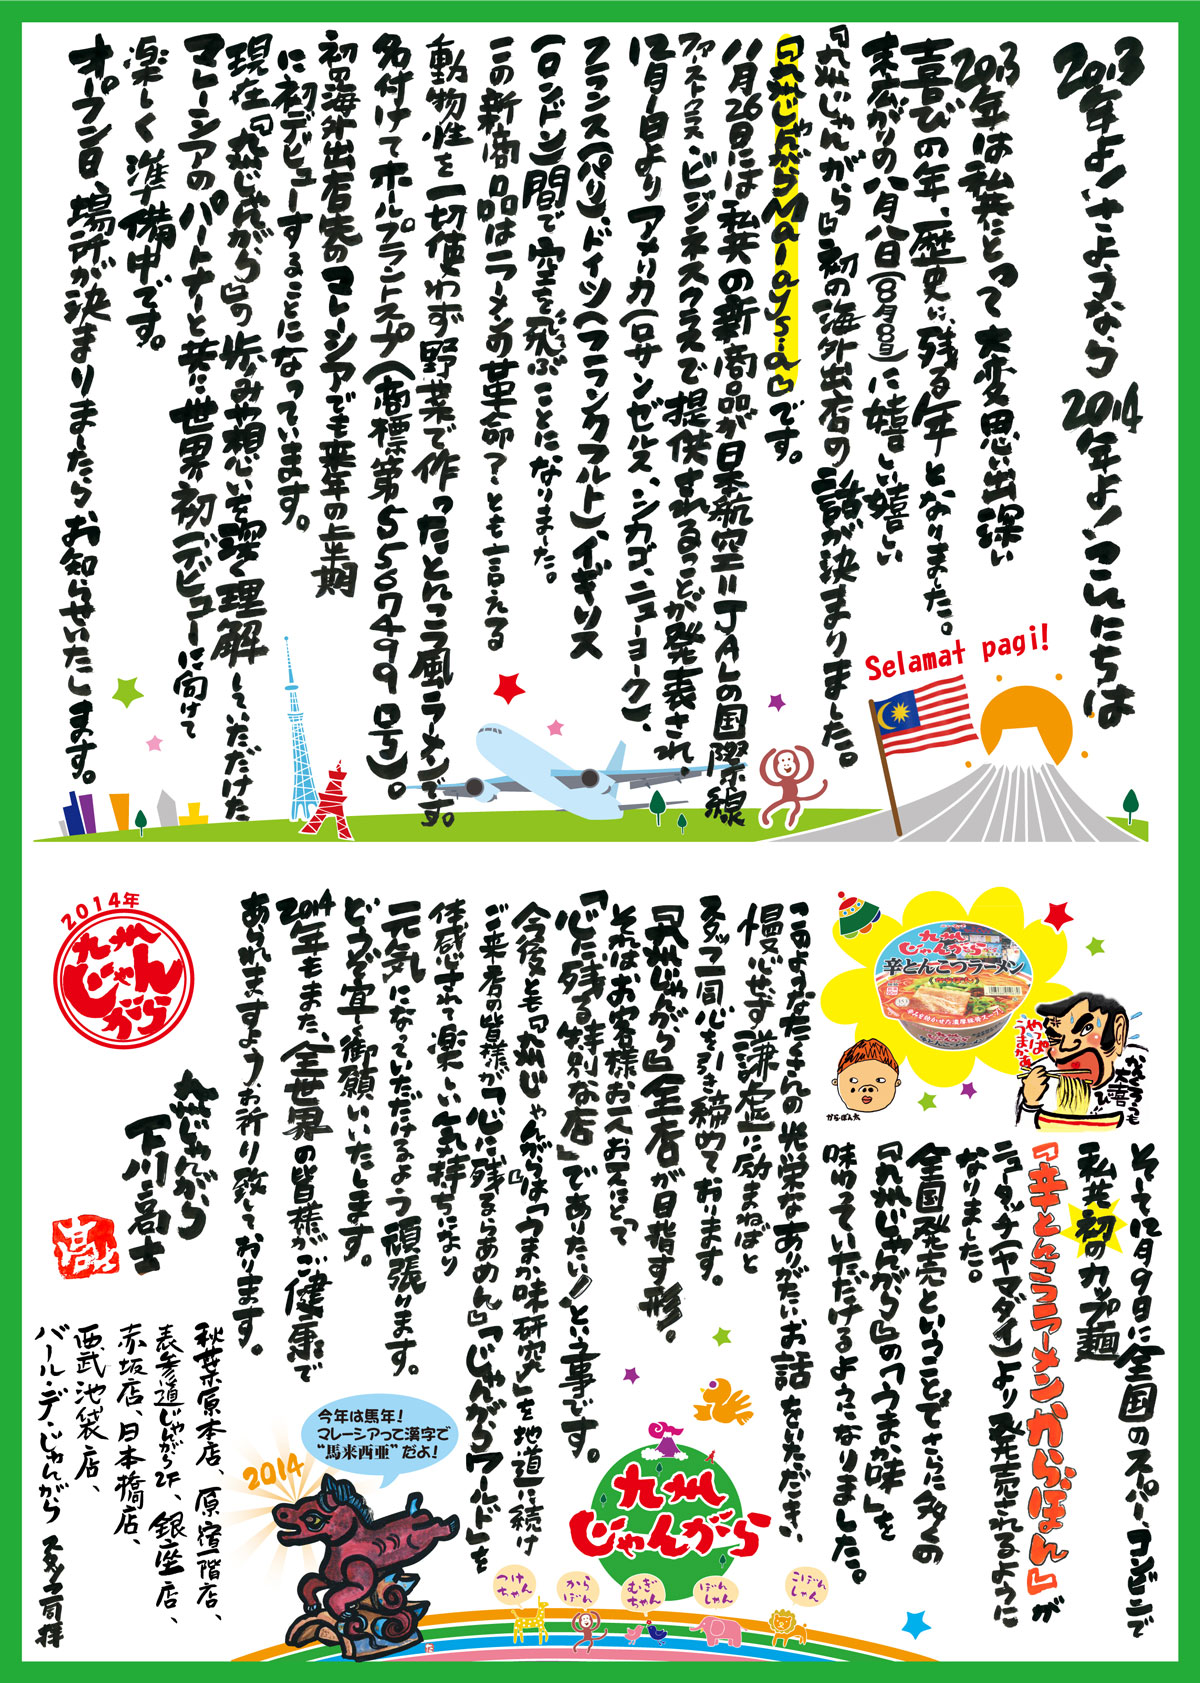 2013年よ!さようなら 2014年よ!こんにちは
2013年は私共にとって大変思い出深い
喜びの年、歴史に残る年となりました。
末広がりの八月八日(8月8日)に嬉しい嬉しい
『九州じゃんがら』初の海外出店の話が決まりました。
『九州じゃんがらMalaysia』です。
11月26日には私共の新商品が日本航空=JALの国際線
ファーストクラス・ビジネスクラスで提供されることが発表され、
12月1日よりアメリカ(ロサンゼルス、シカゴ、ニューヨーク)、
フランス(パリ)、ドイツ(フランクフルト)、イギリス
(ロンドン)間で空を飛ぶことになりました。
この新商品はラーメンの革命?とも言える
動物性を一切使わず野菜で作ったとんこつ風ラーメンです。
名付けてホールプラントスープ(商標第5567499号)。
初の海外出店先のマレーシアでも来年の上半期
に初デビューすることになっています。
現在『九州じゃんがら』の歩みや想いを深く理解していただけた
マレーシアのパートナーと共に世界初デビューに向けて
楽しく準備中です。
オープン日、場所が決まりましたらお知らせいたします。
Selamat pagi!
九州
じゃんがら
辛とんこつラーメン
やっぱ
うまかぁ
からぼん太
そして12月9日に全国のスーパー、コンビニで
私共初のカップ麺
『辛とんこつラーメンからぼん』が
ニュータッチ(ヤマダイ)より発売されるように
なりました。
全国発売ということでさらに多くの
『九州じゃんがら』の「うまか味」を
味わっていただけるようになりました。
このようなたくさんの光栄なありがたいお話をいただき、
慢心せず謙虚に励まねばと
スタッフ一同心を引き締めております。
『九州じゃんがら』全店が目指す形。
それはお客様お一人お一人にとって
「心に残る特別な店」でありたい!という事です。
今後とも『九州じゃんがら』は「うまか味研究」を地道に続け
ご来店の皆様が「心に残るらあめん」「じゃんがらワールド」を
体感されて楽しい気持ちになり
元気になっていただけるよう頑張ります。
どうぞ宜しく御願いいたします。
2014年もまた、全世界の皆様がご健康で
あられますようお祈り致しております。
2014年
九州
じゃん
がら
九州じゃんがら
下川高士
秋葉原本店、原宿一階店、
表参道じゃんがら2F、銀座店、
赤坂店、日本橋店、
西武池袋店、
バール・デ・じゃんがら スタッフ一同拝
今年は馬年!
マレーシアって漢字で
“馬来西亜”だよ!
2014
九州
じゃんがら
つけ
ちゃん
から
ぼん
むぎ
ちゃん
ぼん
しゃん
こぼん
しゃん